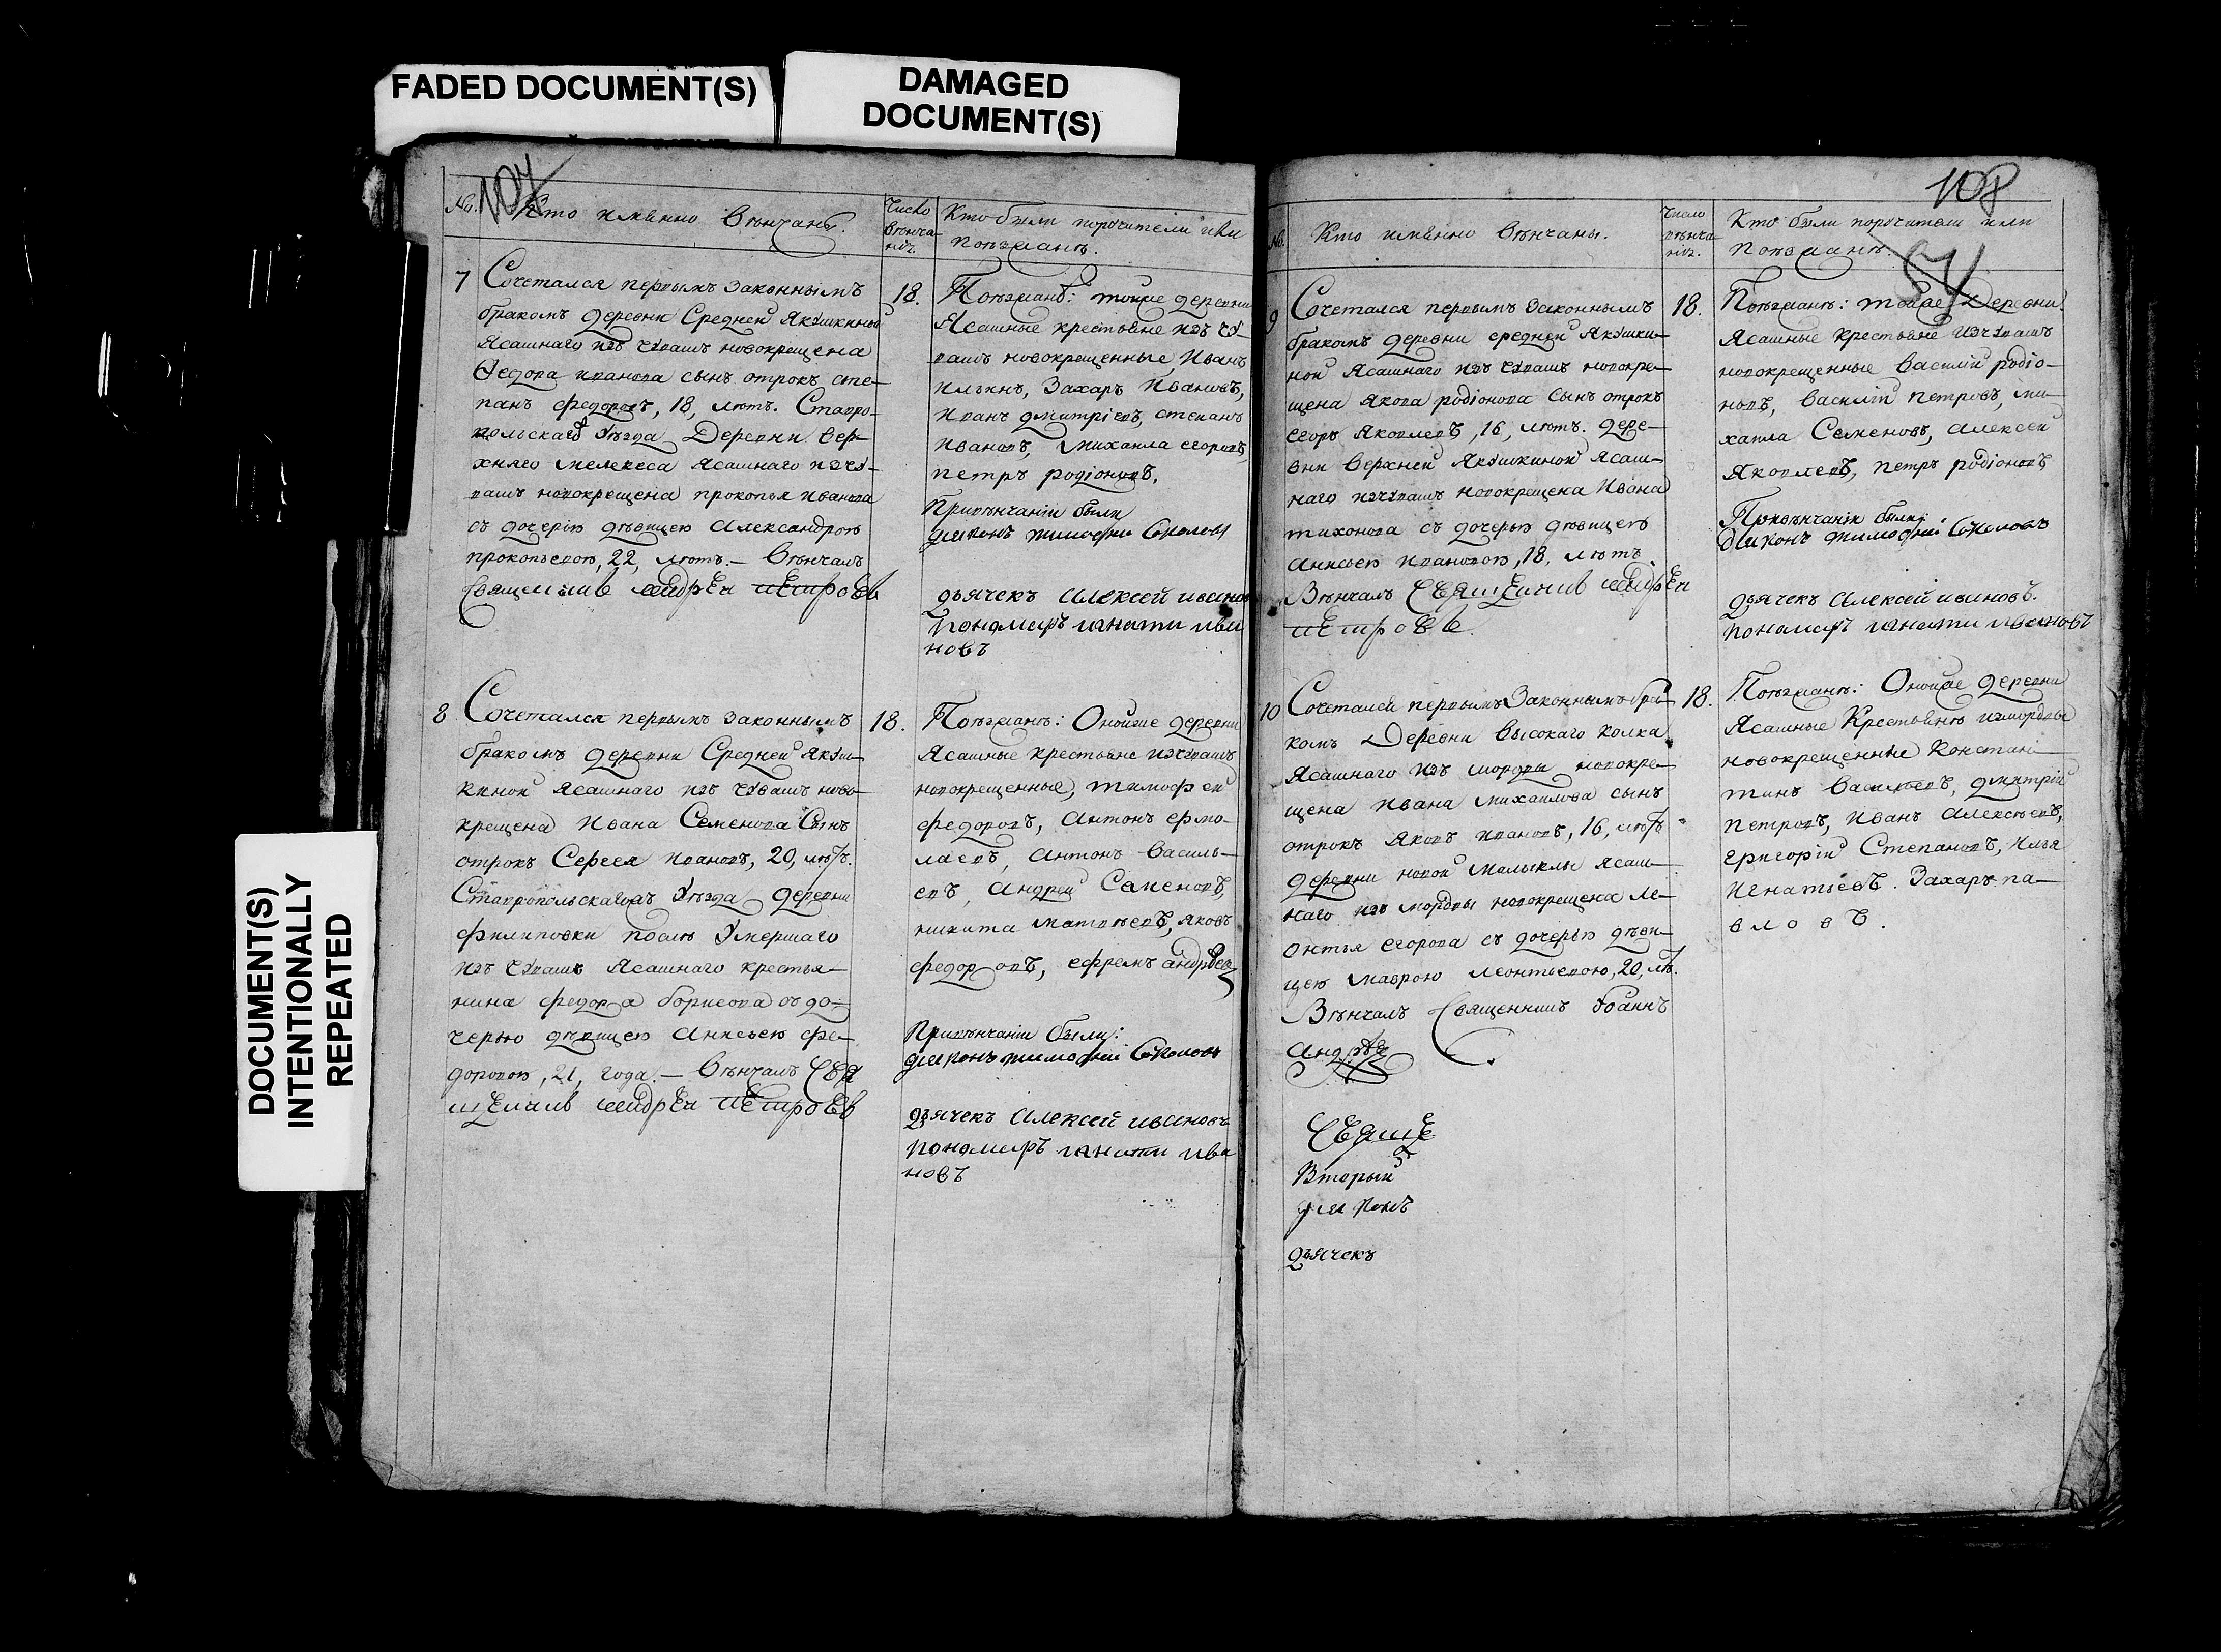 FADED DOCUMENT(S)
DAMAGED
DOCUMENT(S)
DOCUMENT(S)
INTENTIONALLY
REPEATED
107
№. Кто имянно венчаны.
Число
венча
нiя.
Кто были поручители или
поезжанѣ.
7 Сочетался первымъ законнымъ
бракомъ деревни Средней Якушкиной
Ясашнаго изъ чувашъ новокрещена
Федора иванова сынъ отрокъ сте-
панъ федоровъ, 18, лѣтъ. Ставро-
польскаго уѣзда Деревни вер-
хняго мелекеса ясашнаго изъ чу-
вашъ новокрещена прокопья иванова
съ дочерiю дѣвицею александрою
прокопьевою, 22, лѣтъ. — Вѣнчалъ
Священник андреи петров
18.
Поѣзжанѣ: тойже деревни
Ясашные крестьяне изъ чу-
вашъ новокрещенные, Иванъ
ильинъ, Захаръ Ивановъ,
иванъ дмитрiевъ, степанъ
ивановъ, михаила егоровъ,
петръ родiоновъ.
Привѣнчанiи были
диконъ тимофии Соколовъ
дьячекъ алексей иванов
пономаръ игнати ива
новъ
8 Сочетался первымъ законнымъ
бракомъ деревни Средней якуш-
киной ясашнаго изъ чувашъ ново-
крещена Ивана Семенова Сынъ
отрокъ Сергея ивановъ, 20, лѣтъ.
Ставропольскагожъ уѣзда деревни
филиповки послѣ умершаго
изъ чувашъ Ясашнаго крестья-
нина федора борисова съ до-
черью дѣвицею анисьею фе-
доровою, 21, года. — Вѣнчалъ Свя
щенник андреи петров
18.
Поѣзжанѣ: Онойже деревни
Ясашные крестьяне изъ чувашъ
новокрещенные, тимофеи
федоровъ, антонъ ермо-
лаевъ, антонъ василь-
евъ, андреи Семеновъ,
никита матвѣевъ, яковъ
федоровъ, ефремъ андрѣев
Привѣнчанiи были:
диконъ тимофии Соколовъ
дьячекъ алексей ивановъ
пономаръ игнати ива
новъ
108
54
№. Кто имянно вѣнчаны.
Число
вѣнча
нiя.
Кто были поручители или
поѣзжанѣ.
9 Сочетался первымъ законнымъ
бракомъ деревни средней якушки-
ной ясашнаго изъ чувашъ новокре-
щена якова родiонова сынъ отрокъ
егоръ яковлевъ, 16, лѣтъ. дере-
вни верхней якушкиной ясаш-
наго изъ чувашъ новокрещена ивана
тихонова съ дочерью дѣвицею
анисьею ивановою, 18, лѣтъ.
Вѣнчалъ Священник андреи
петров
18.
Поѣзжанѣ: тойже Деревни
ясашные крестьяне изъ чувашъ
новокрещенные василiи родiо-
новъ, василiи петровъ, ми-
хаила Семеновъ, алексеи
яковлевъ, петръ родiоновъ
Привѣнчанiи были
диконъ тимофии Соколовъ
дьячекъ алексей ивановъ.
пономаръ игнати ивановъ
10 Сочетался первымъ Законнымъ бра-
комъ Деревни высокаго колка
Ясашнаго изъ мордвы новокре-
щена ивана михаилова сынъ
отрокъ яковъ ивановъ, 16, лѣтъ
деревни новой малыклы ясаш-
наго изъ мордвы новокрещена ле-
онтья егорова съ дочерью дѣви-
цею маврою леонтьевою, 20, лѣ.
Вѣнчалъ Священникъ Iоаннъ
андрѣев
18.
Поѣзжанѣ: Онойже деревни
Ясашные Крестьянѣ измордвы
новокрещенные констан-
тинъ васильевъ, дмитрiи
петровъ, иванъ алексѣевъ,
григорiи Степановъ, илья
игнатьевъ. Захаръ па-
вловъ.
Свяще
Вторыи
диконъ
дьячекъ